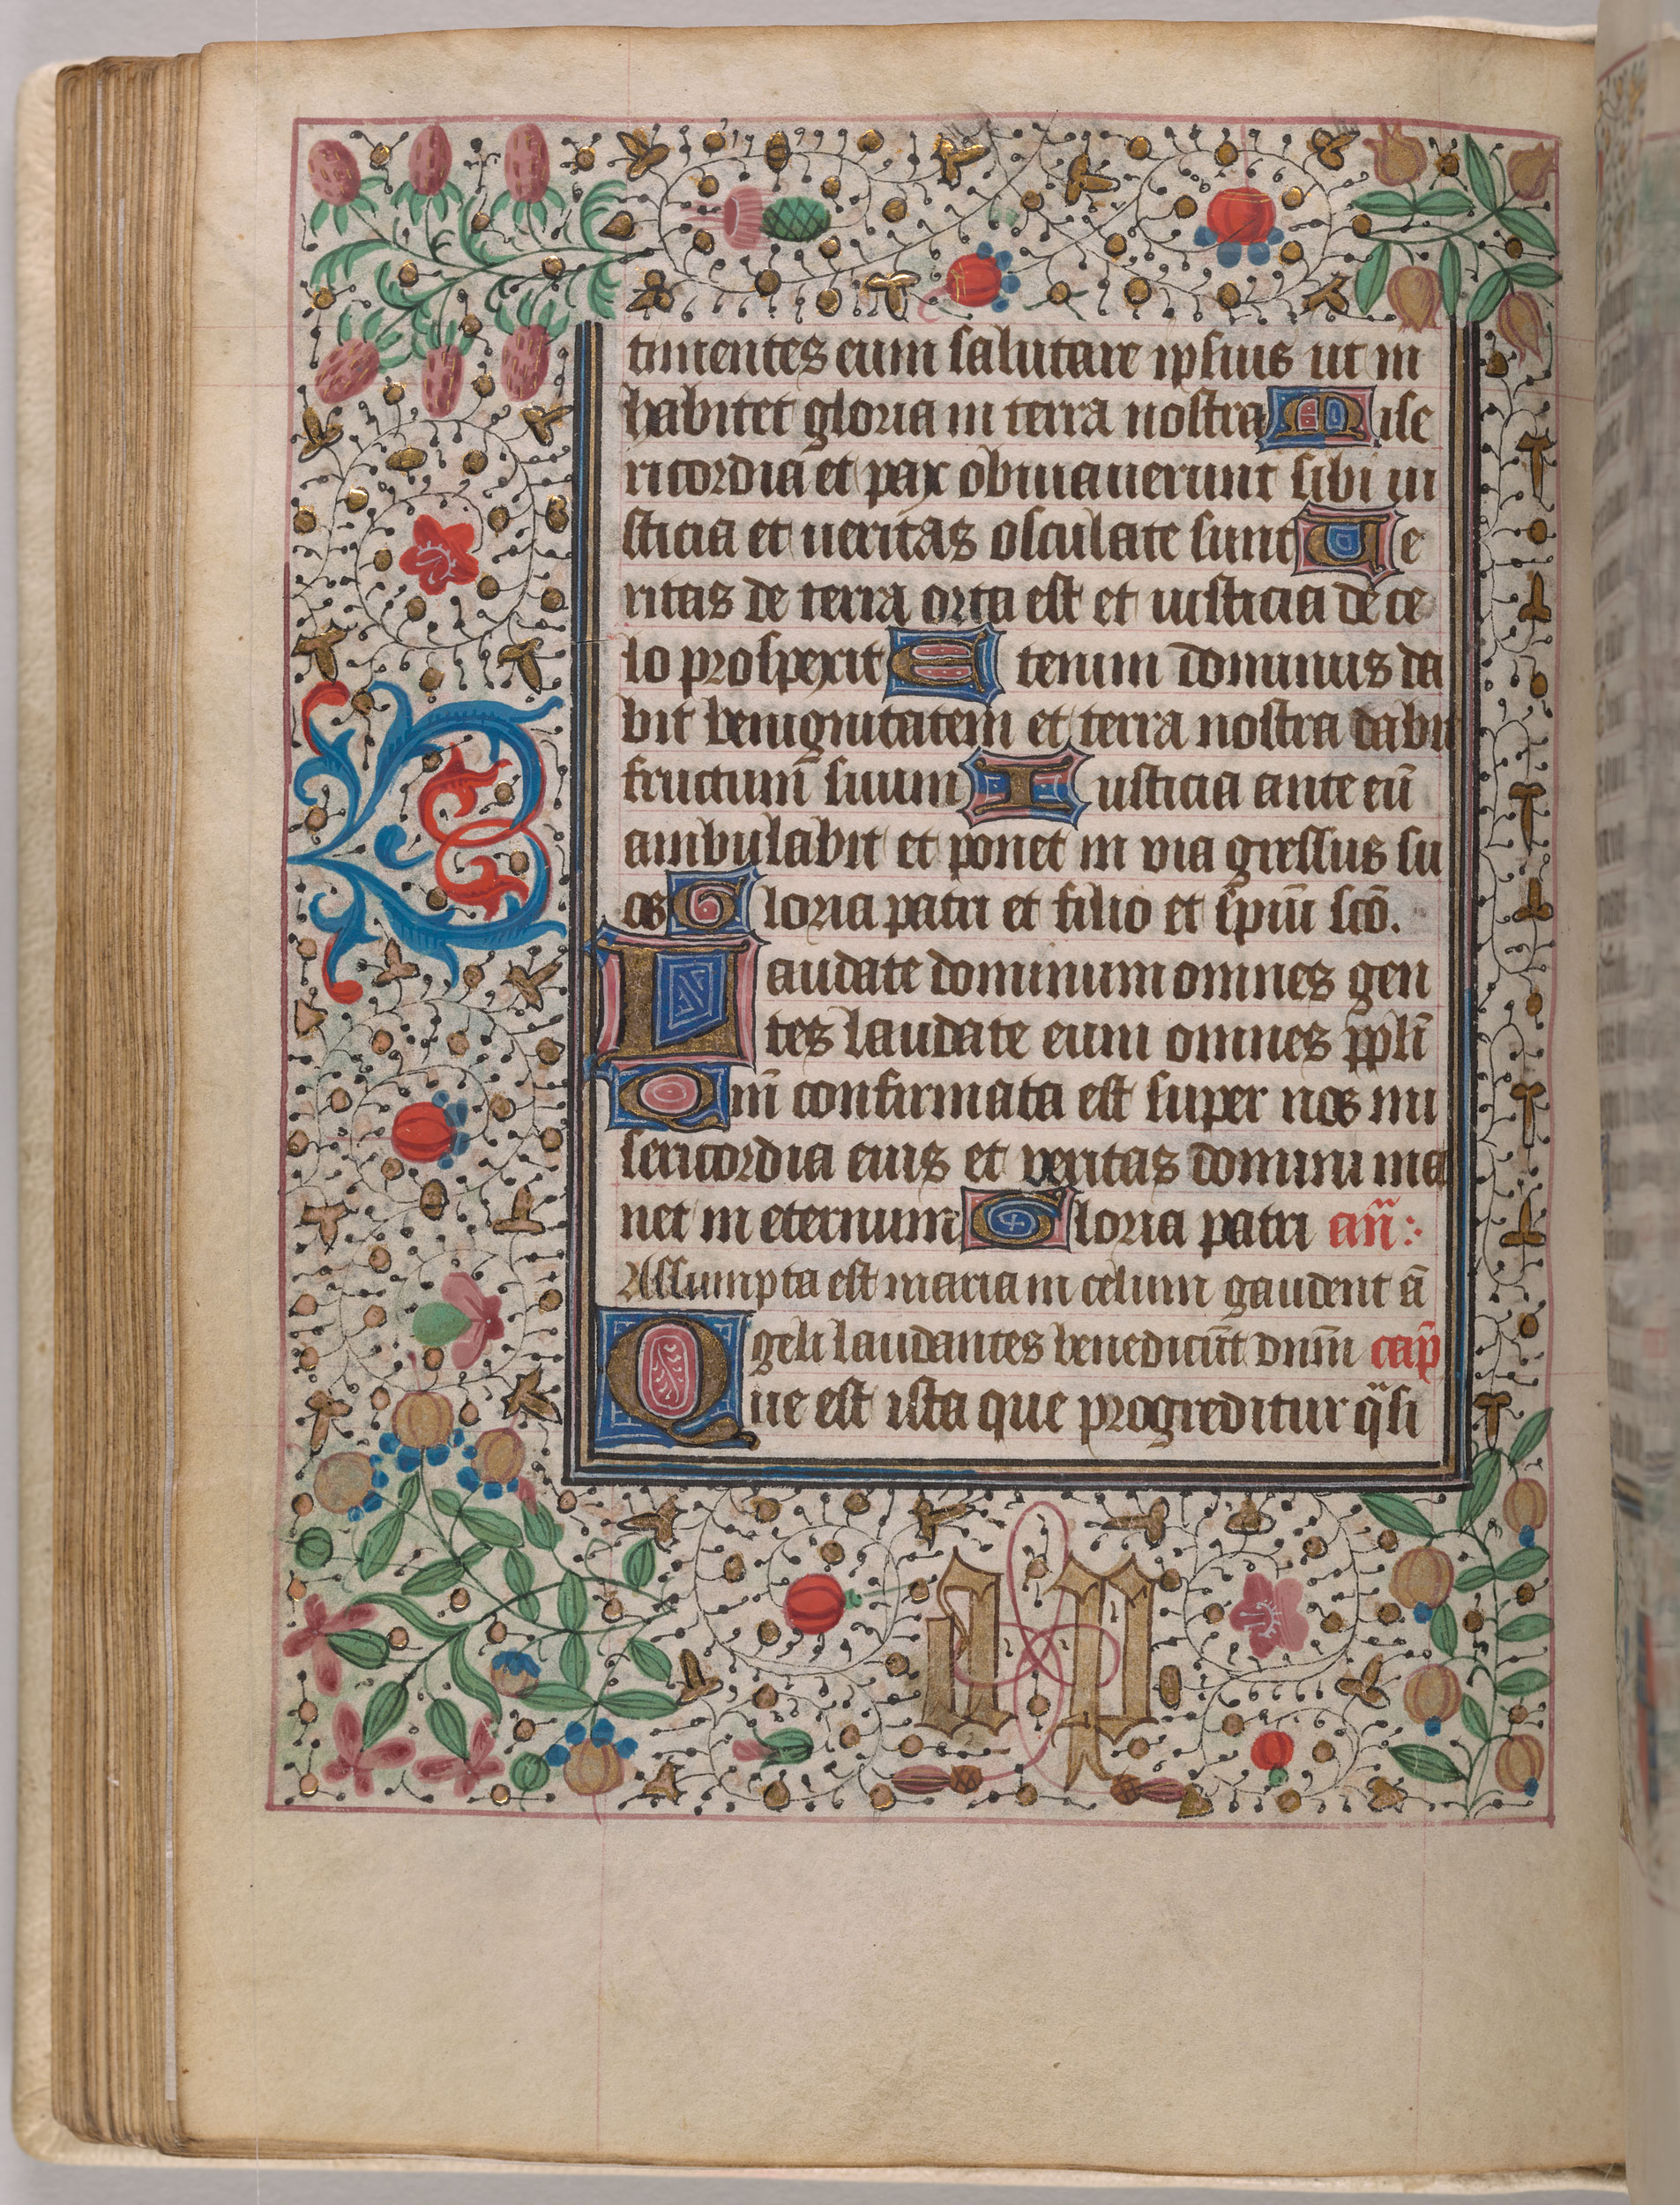 timentes eum salutare ipsius ut in
habitet gloria in terra nostra Mise
ricordia et pax obuiauerunt sibi iu
sticia et ueritas osculate sunt Ue
ritas de terra orta est et iusticia de ce
lo prospexit Etenim dominus da
bit benignitatem et terra nostra dabit
fructum suum Iusticia ante eū
ambulabit et ponet in via gressus su
os Gloria patri et filio et spiūi scō.
Laudate dominum omnes gen
tes laudate eum omnes ppl̄i
Qm̄ confirmata est super nos mi
sericordia eius et veritas domini ma
net in eternum Gloria patri an̄
Assumpta est maria in celum gaudent ā
geli laudantes benedicūt dnm̄ cap̄
Que est ista que progreditur q̄si